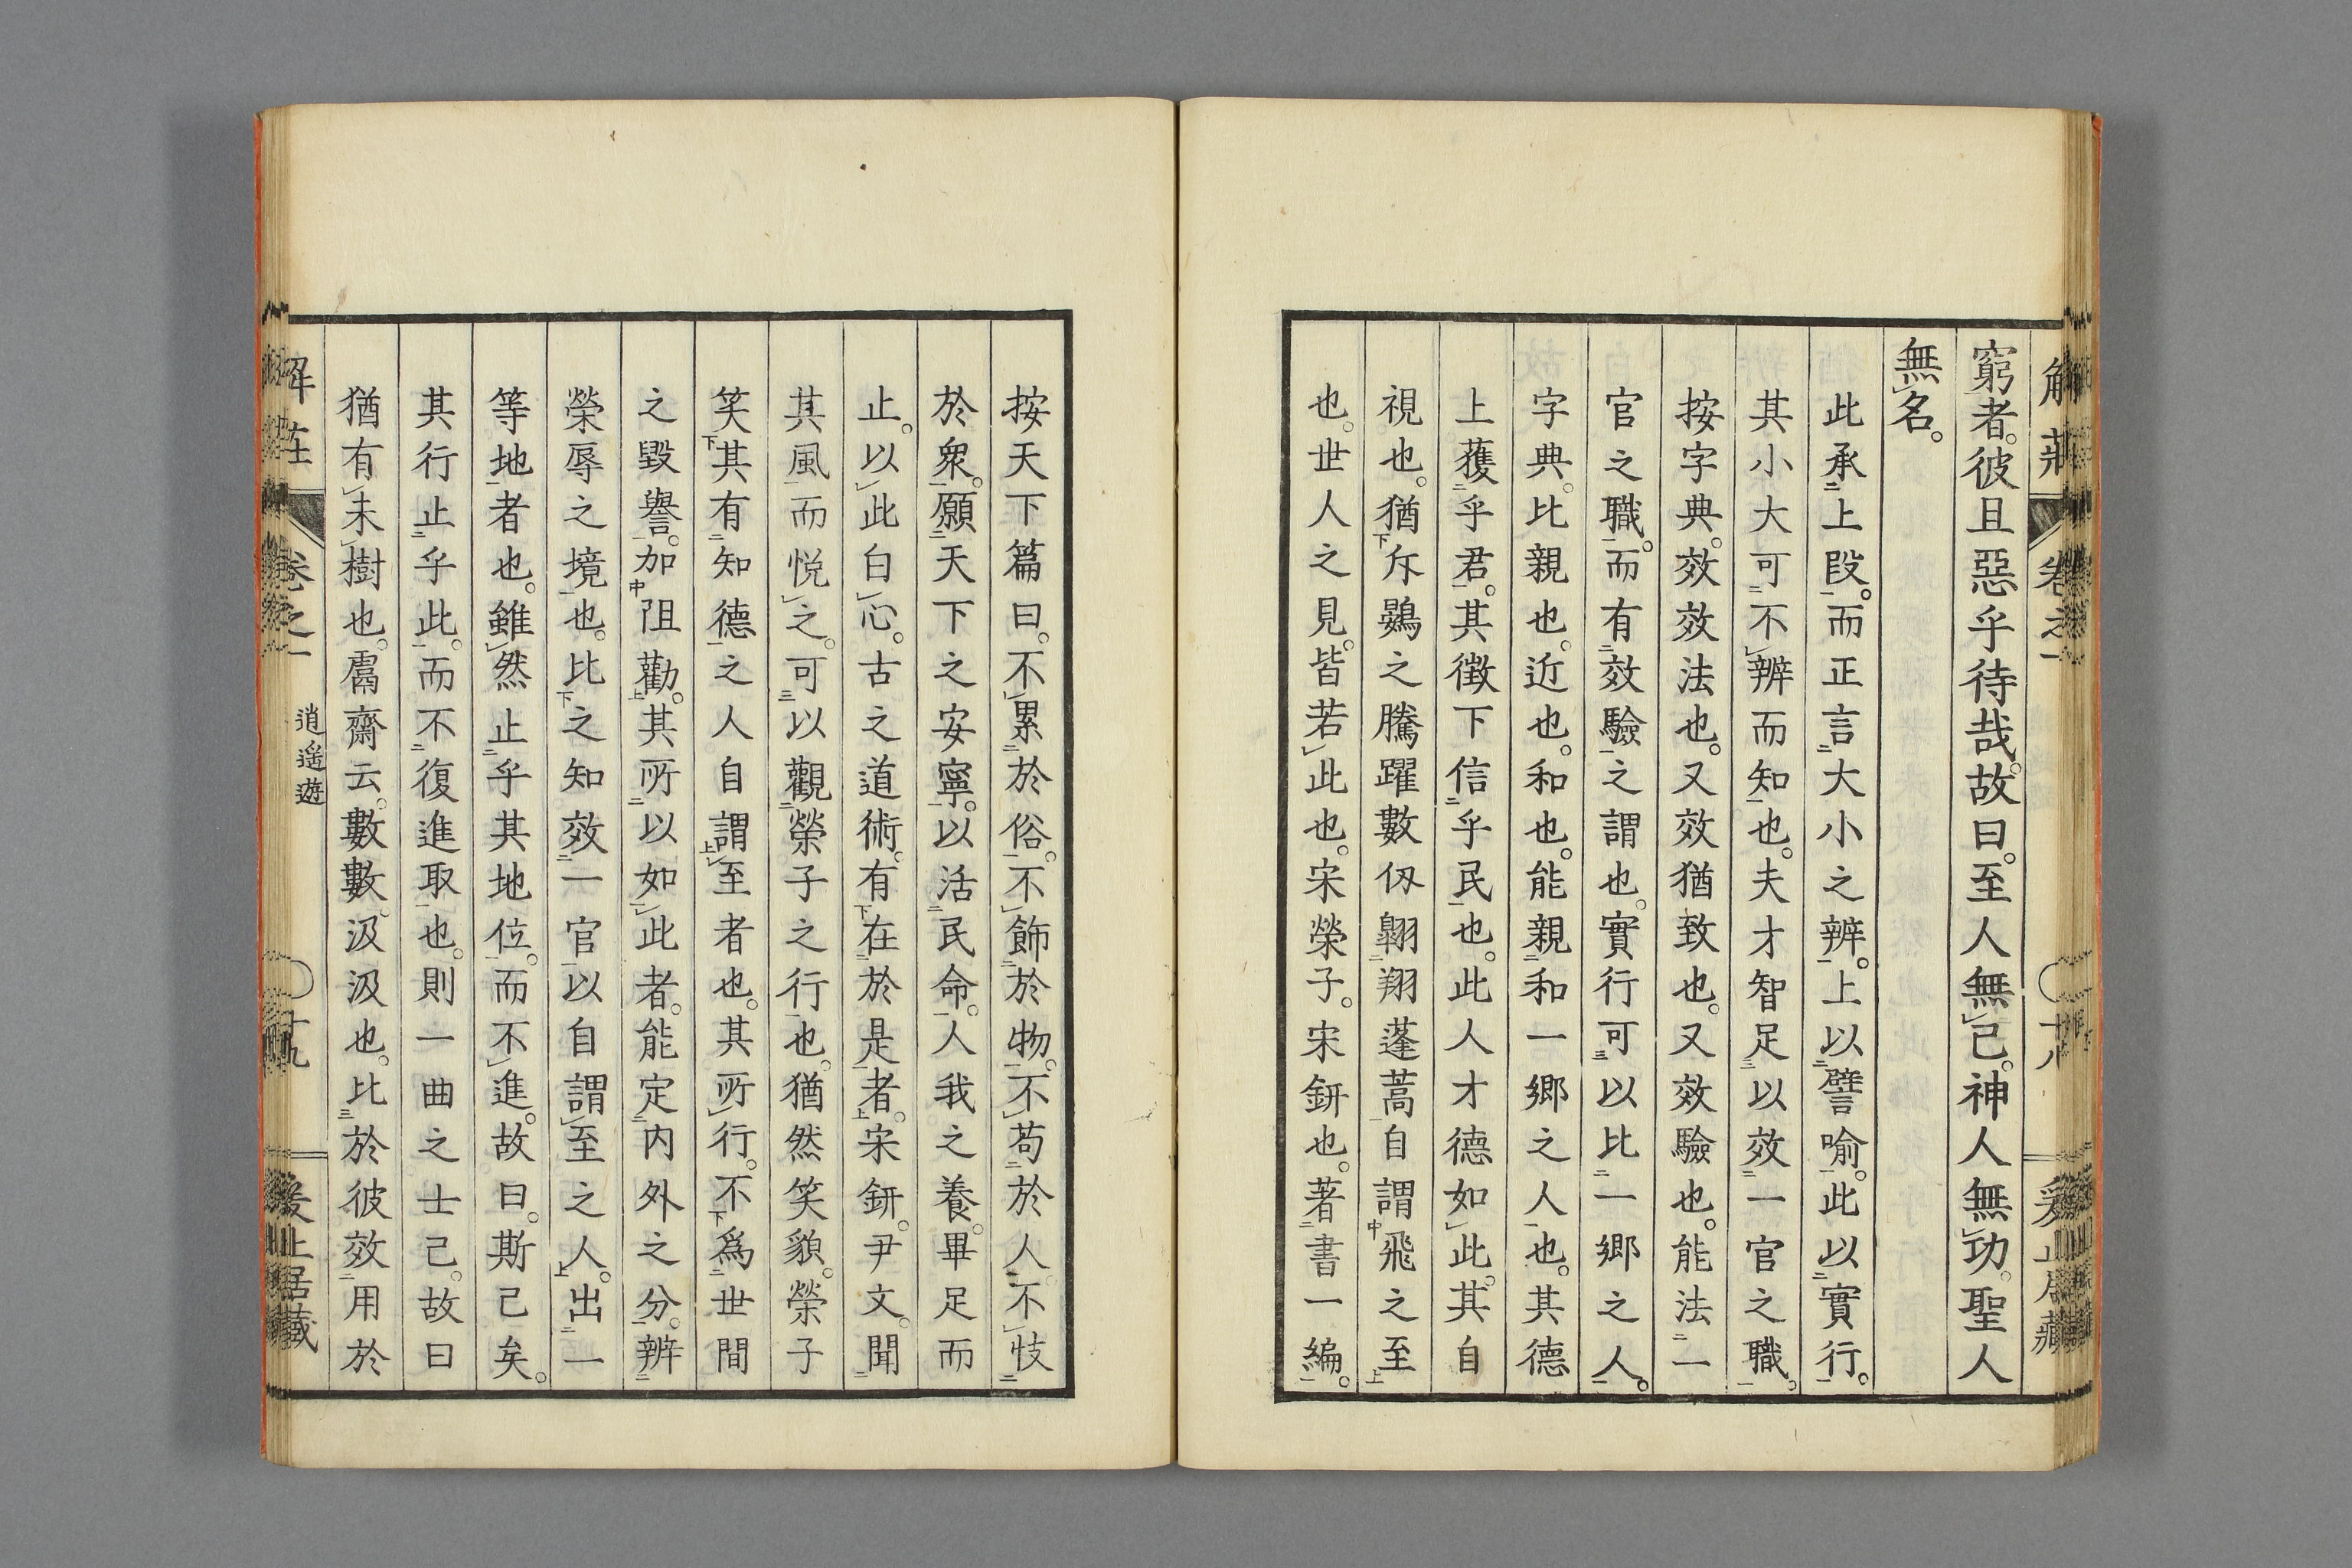 解莊 卷之一 十八 爰止居藏
窮者。彼且惡乎待哉。故曰。至人無己。神人無功。聖人
無名。
此承上段。而正言大小之辨。上以譬喻。此以實行。
其小大可不辨而知也。夫才智足以效一官之職。
按字典。效效法也。又效猶致也。又效驗也。能法一
官之職。而有效驗之謂也。實行可以比一鄉之人。
字典。比親也。近也。和也。能親和一鄉之人也。其德
上獲乎君。其徵下信乎民也。此人才德如此。其自
視也。猶斥鷃之騰躍數仞翺翔蓬蒿自謂飛之至
也。世人之見。皆若此也。宋榮子。宋鈃也。著書一編。
按天下篇曰。不累於俗。不飾於物。不苟於人。不忮
於衆。願天下之安寧。以活民命。人我之養。畢足而
止。以此白心。古之道術。有在於是者。宋鈃。尹文。聞
其風而悦之。可以觀榮子之行也。猶然笑貌。榮子
笑其有知德之人自謂至者也。其所行。不爲世間
之毀譽。加阻勸。其所以如此者。能定内外之分。辨
榮辱之境也。比之知效一官以自謂至之人。出一
等地者也。雖然止乎其地位。而不進。故曰。斯已矣。
其行止乎此。而不復進取也。則一曲之士已。故曰
猶有未樹也。鬳齋云。數數。汲汲也。比於彼效用於
解莊 卷之一 逍遙遊 十九 爰止居藏